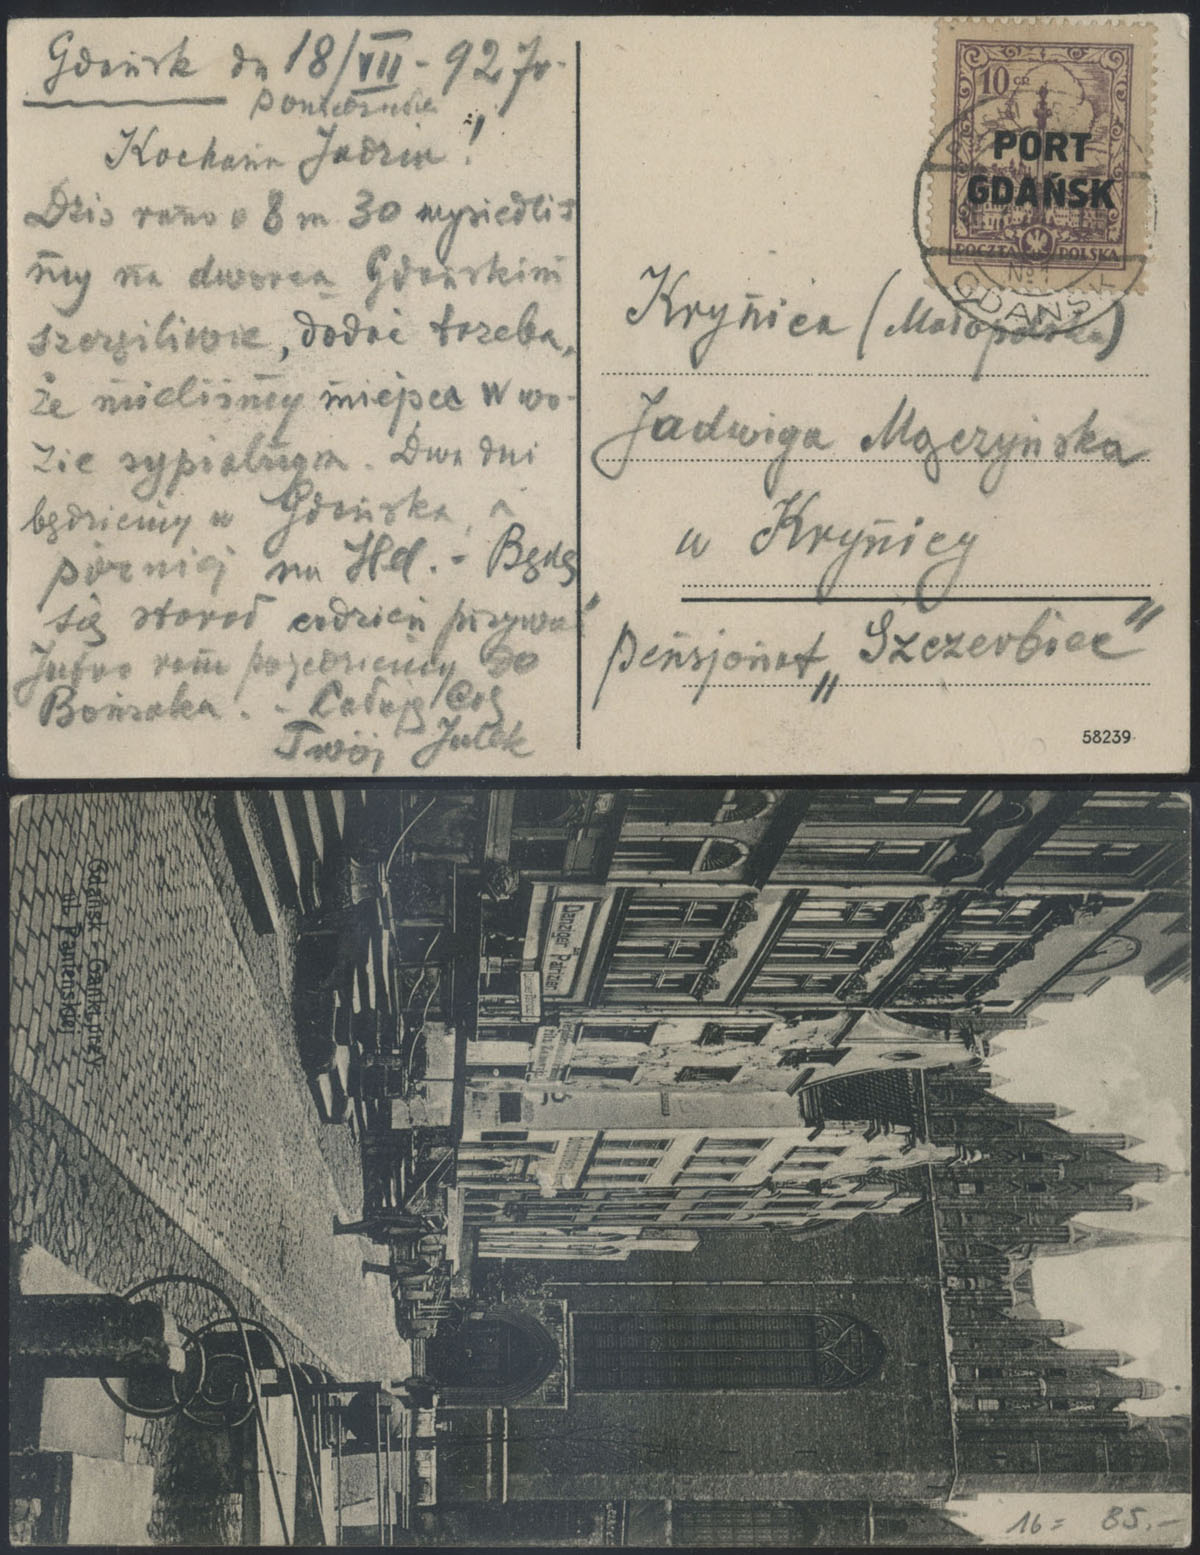 Gdańsk dn 18/VII - 927r.
Kochana Jadziu!
Dziś rano o 8 m 30 wysiedliś
my na dworcu Gdańskim
szczęśliwie, dodać trzeba,
że mieliśmy miejsca w wo-
zie sypialnym. Dwa dni
będziemy w Gdańsku, a
później na Hel. - Będę
się starał codzień pisywać
Jutro rano pojedziemy do
- Całuję Cię
Twój Julek
10 GR
PORT
GDAŃSK
POCZTA POLSKA
No 1
GDAŃSK
Krynica (Małopolska)
Jadwiga Mączyńska
w Krynicy
pensjonat „Szczerbiec"
58239
Danziger Patrizier
16= 85.-